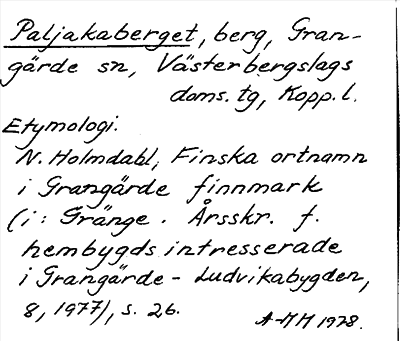 Paljakaberget, berg, Gran-
gärde sn, Västerbergslags
doms. tg, Kopp. l.
Etymologi.
N. Holmdahl, Finska ortnamn
i Grangärde finnmark
(i: Gränge. Årsskr. f.
hembygdsintresserade
i Grangärde - Ludvikabygden,
8, 1977), s. 26.
A-MM 1978.